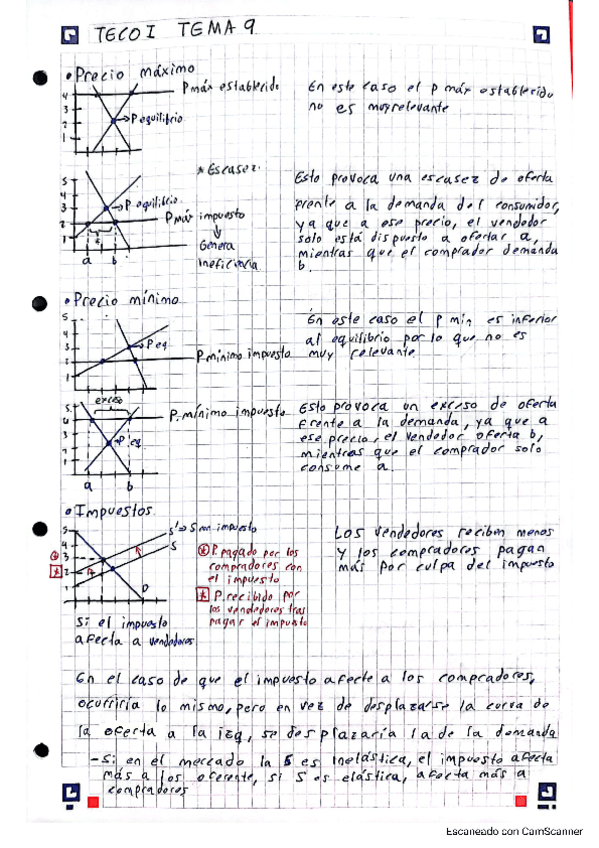 TECO I TEMA 9
• Precio máximo
P máx establecido
P equilibrio
4
3
2
1
En este caso el p máx establecido
no es muy relevante
* Escasez
5
4
3
2
1
P equilibrio
P máx impuesto
Genera
ineficiencia
*
a b
Esto provoca una escasez de oferta
frente a la demanda del consumidor,
ya que a ese precio, el vendedor
solo está dispuesto a ofertar a,
mientras que el comprador demanda
b.
• Precio mínimo
5
4
3
2
1
P eq
P. mínimo impuesto
En este caso el p min es inferior
al equilibrio por lo que no es
muy relevante
exceso
5
4
3
2
1
P. mínimo impuesto
P eq
a b
Esto provoca un exceso de oferta
frente a la demanda, ya que a
ese precio, el vendedor oferta b,
mientras que el comprador solo
consume a.
• Impuestos
5
4
3
2
1
S' => S con impuesto
S
D
* P. pagado por los
compradores con
el impuesto
* P. recibido por
los vendedores tras
pagar el impuesto
Los vendedores reciben menos
y los compradores pagan
más por culpa del impuesto
Si el impuesto
afecta a vendedores
En el caso de que el impuesto afecte a los compradores,
ocurriría lo mismo, pero en vez de desplazarse la curva de
la oferta a la izq, se desplazaría la de la demanda
- Si en el mercado la S es inelástica, el impuesto afecta
más a los oferente, si S es elástica, afecta más a
compradores
Escaneado con CamScanner